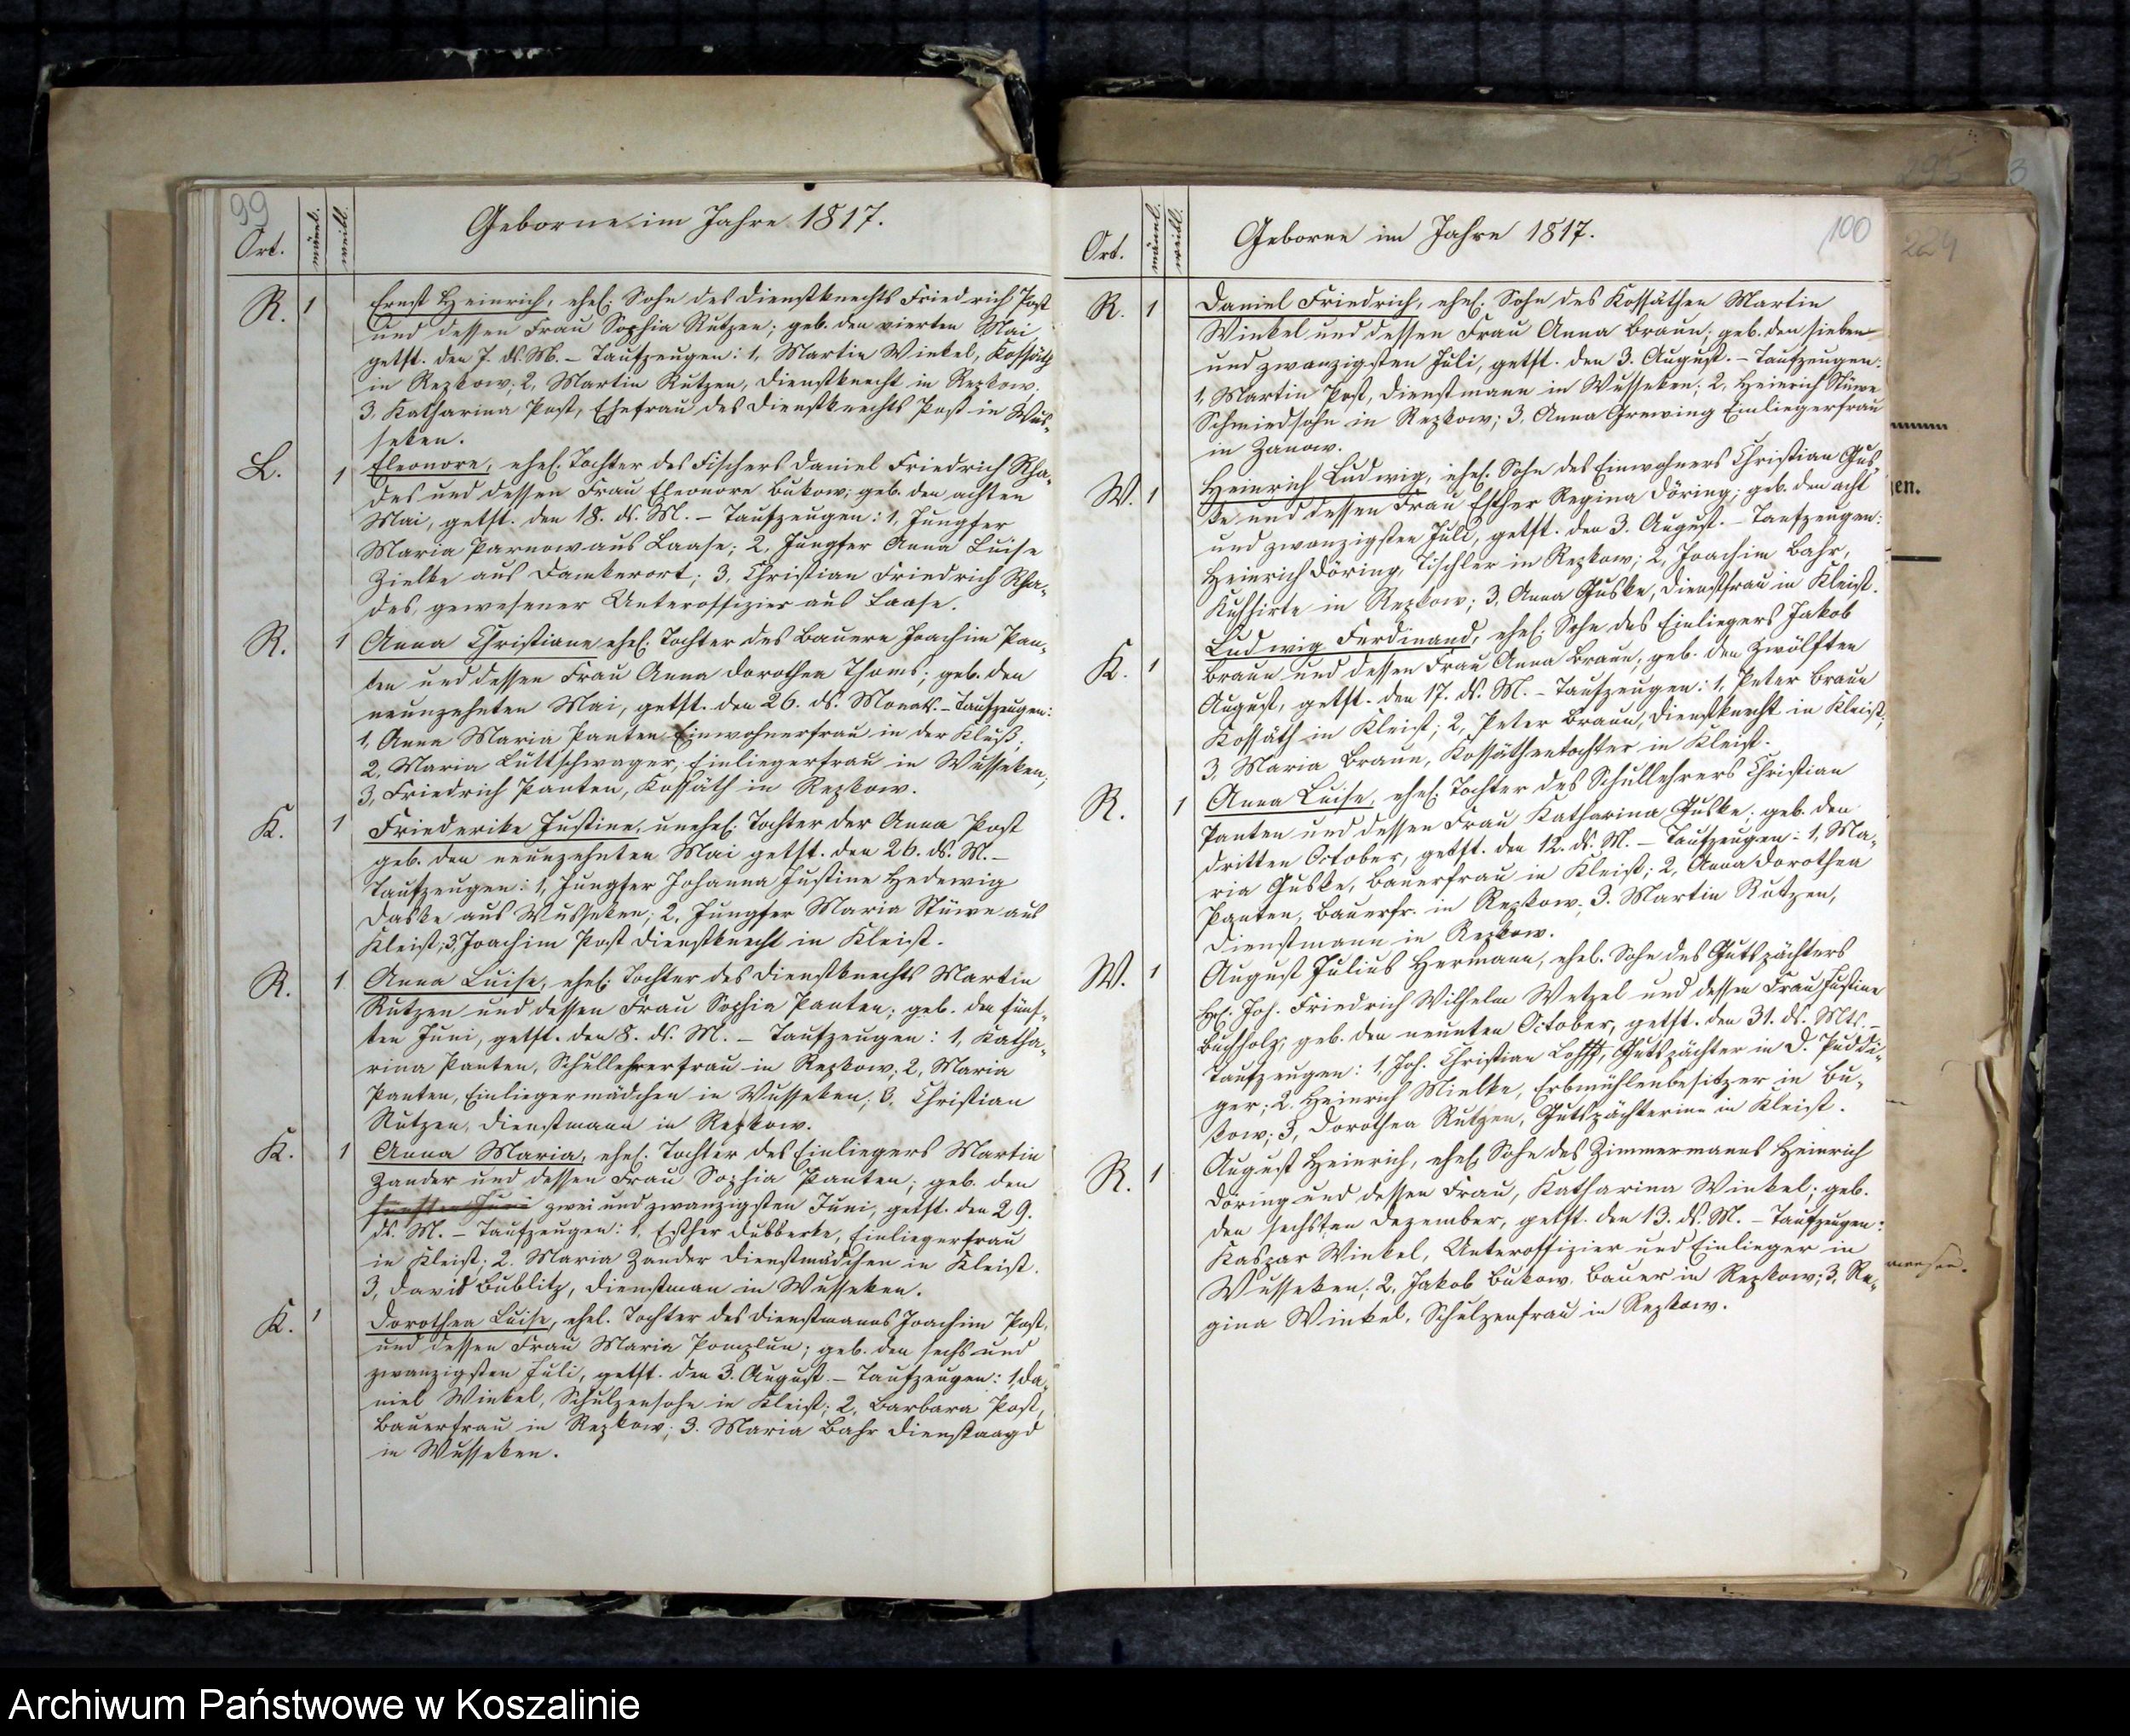 99
Ort.
männl.
weibl.
Geborne im Jahre 1817.
R. 1 Ernst Heinrich, ehel. Sohn des Dienstknechts Friedrich Post
und dessen Frau Sophia Rutzen; geb. den vierten Mai
getft. den 7. ds. M. – Taufzeugen: 1, Martin Winkel, Kossäth
in Repkow; 2, Martin Rutzen, Dienstknecht in Repkow.
3. Katharina Post, Ehefrau des Dienstknechts Post in Wus-
seken.
L. 1 Eleonore, ehel. Tochter des Fischers Daniel Friedrich Rha-
des und dessen Frau Eleonore Bukow; geb. den achten
Mai, getft. den 18. ds. M. – Taufzeugen: 1, Jungfer
Maria Parnow aus Laase; 2, Jungfer Anna Luise
Zielke aus Damkerort; 3, Christian Friedrich Rha-
des, gewesener Unteroffizier aus Laase.
R. 1 Anna Christiane ehel. Tochter des Bauern Joachim Pan-
ten und dessen Frau Anna Dorothea Thoms; geb. den
neunzehnten Mai, getft. den 26. ds. Monats. – Taufzeugen:
1, Anna Maria Panten Einwohnerfrau in der Kluß;
2, Maria Lüttschwager, Einliegerfrau in Wusseken;
3, Friedrich Panten, Kossäth in Repkow.
K. 1 Friederike Justine, unehel. Tochter der Anna Post
geb. den neunzehnten Mai getft. den 26. ds. M. –
Taufzeugen: 1, Jungfer Johanna Justine Hedewig
Daske aus Wusseken; 2. Jungfer Maria Stüwe aus
Kleist; 3, Joachim Post Dienstknecht in Kleist.
R. 1 Anna Luise, ehel. Tochter des Dienstknechts Martin
Rutzen und dessen Frau Sophia Panten; geb. den fünf-
ten Juni, getft. den 8. ds. M. – Taufzeugen: 1, Katha-
rina Panten, Schullehrerfrau in Repkow; 2, Maria
Panten, Einliegermädchen in Wusseken; 3. Christian
Rutzen, Dienstmann in Repkow.
K. 1 Anna Maria, ehel. Tochter des Einliegers Martin
Zander und dessen Frau Sophia Panten; geb. den
fünften Juni zwei und zwanzigsten Juni, getft. den 29.
ds. M. – Taufzeugen: 1, Esther Dubberke, Einliegerfrau
in Kleist; 2. Maria Zander Dienstmädchen in Kleist.
3, David Bublitz, Dienstman in Wusseken.
K. 1 Dorothea Luise, ehel. Tochter des Dienstmanns Joachim Post,
und dessen Frau Maria Pomplun; geb. den sechs und
zwanzigsten Juli, getft. den 3. August. – Taufzeugen: 1, Da-
niel Winkel, Schulzensohn in Kleist; 2, Barbara Post,
Bauerfrau in Repkow; 3. Maria Bahr Dienstmagd
in Wusseken.
100
Ort.
männl.
weibl.
Geborne im Jahre 1817.
R. 1 Daniel Friedrich, ehel. Sohn des Kossäthen Martin
Winkel und dessen Frau Anna Braun; geb. den sieben
und zwanzigsten Juli, getft. den 3. August. – Taufzeugen:
1, Martin Post, Dienstmann in Wusseken; 2, Heinrich Stüwe
Schmiedsohn in Repkow; 3, Anna Grewing Einliegerfrau
in Zanow.
W. 1 Heinrich Ludwig, ehel. Sohn des Einwohners Christian Gus
ke und dessen Frau Esther Regina Döring; geb. den acht
und zwanzigsten Juli, getft. den 3. August. – Taufzeugen:
Heinrich Döring, Tischler in Repkow; 2, Joachim Bahr,
Kuhhirte in Repkow; 3, Anna Guske, Dienstfrau in Kleist.
K. 1 Ludwig Ferdinand, ehel. Sohn des Einliegers Jakob
Braun und dessen Frau Anna Braun, geb. den zwölften
August, getft. den 17. ds. M. – Taufzeugen: 1, Peter Braun
Kossäth in Kleist; 2, Peter Braun, Dienstknecht in Kleist;
3, Maria Braun, Kossäthentochter in Kleist.
R. 1 Anna Luise, ehel. Tochter des Schullehrers Christian
Panten und dessen Frau Katharina Guske; geb. den
dritten October, getft. den 12. ds. M. – Taufzeugen: 1, Ma-
ria Guske, Bauerfrau in Kleist; 2, Anna Dorothea
Panten, Bauerfr. in Repkow; 3. Martin Rutzen,
Dienstmann in Repkow.
W. 1 August Julius Hermann, ehel. Sohn des Gutspächters
Joh. Friedrich Wilhelm Wetzel und dessen Frau Justine
Buchholz; geb. den neunten October, getft. den 31. ds. Mts. –
Taufzeugen: 1, Joh. Christian Gutspächter in D. Puddi-
ger; 2. Heinrich Mielke, Erbmühlenbesitzer in Bu-
kow; 3, Dorothea Rutzen, Gutspächterinn in Kleist.
R. 1 August Heinrich, ehel. Sohn des Zimmermanns Heinrich
Döring und dessen Frau, Katharina Winkel; geb.
den sechsten Dezember, getft. den 13. ds. M. – Taufzeugen:
Kaspar Winkel, Unteroffizier und Einlieger in
Wusseken; 2, Jakob Bukow, Bauer in Repkow; 3, Re-
gina Winkel, Schulzenfrau in Repkow.
295
3
224
en.
Archiwum Państwowe w Koszalinie